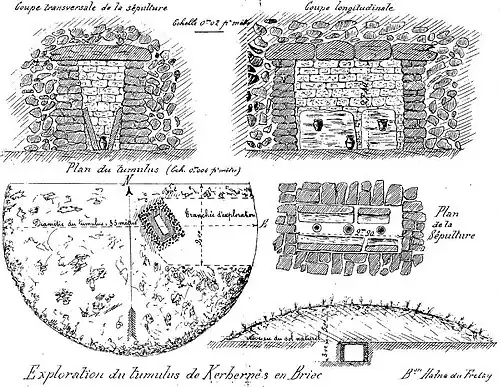 Coupe transversale de la sépulture
Coupe longitudinale
Echelle 0m02 p' mètre
Plan du tumulus (Ech. 0m004 p' mètre)
N
Tranchée d'exploration
Diamètre du tumulus : 33 mètres
E
Plan
de la
Sépulture
2m50
Niveau du sol naturel
Exploration du tumulus de Kerbernès en Briec
Bon Halna du Fretay